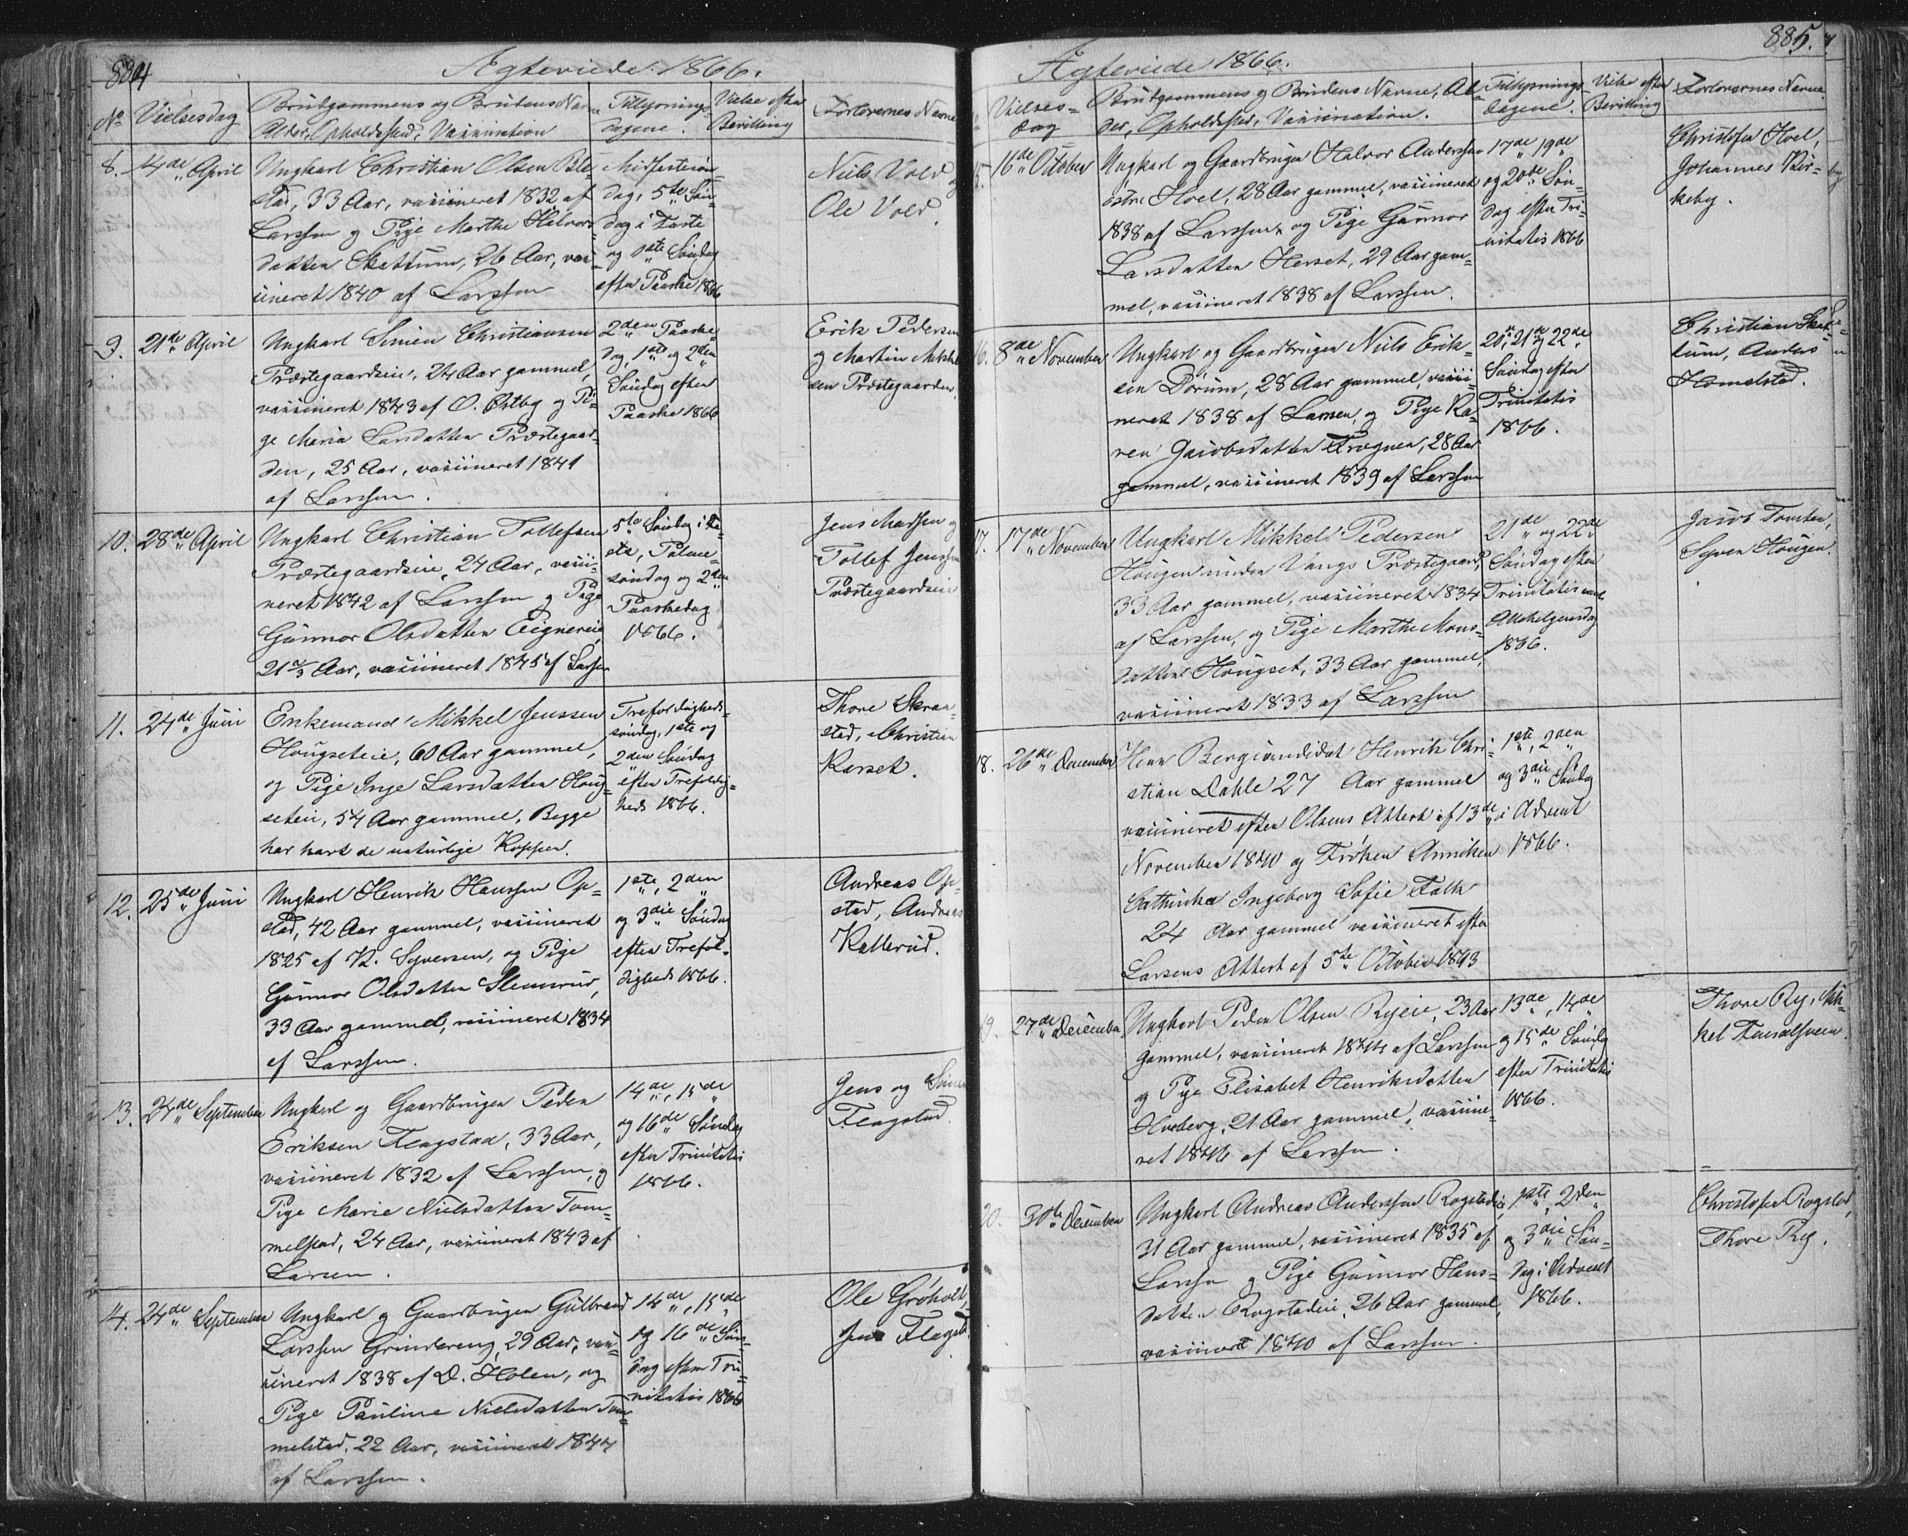 884
Ægteviede 1866.
No
Vielsesdag
Brudgommens og Brudens Navne
Alder, Opholdssted, Vaccination
Tillysnings-
dagene.
Vielse efter
Bevilling
Forlovernes Navne
8.
14de April
Ungkarl Christian Olsen Ble-
stad, 33 Aar, vaccineret 1832 af
Larssen og Pige Marthe Halvors-
datten Skattum, 26 Aar, vac-
cineret 1840 af Larssen
Midfastesøn-
dag, 5te Søn-
dag i Faste
og 1ste Søndag
efter Paaske 1866
Niels Vold og
Ole Vold.
9.
21de April
Ungkarl Simen Christiansen
Præstegaardseie, 24 Aar gammel,
vaccineret 1843 af O. Østby og Pi-
ge Maria Larsdatten Præstegaar-
den, 25 Aar, vaccineret 1841
af Larssen.
2den Paaske
dag, 1ste og 2den
Søndag efter
Paaske 1866
Erik Pedersen
og Martin
Præstegaarden.
10.
28de April
Ungkarl Christian Tollefsen
Præstegaardseie, 24 Aar, vacci-
neret 1842 af Larssen og Pige
Gunnor Olsdatten Eignereie,
21 Aar, vaccineret 1845 af Larssen
5te Søndag i Fa-
ste, Palme-
søndag og 2den
Paaskedag
1866.
Jens Madssen og
Tollef Jenssen
Præstegaardseie
11.
24de Juni
Enkemand Mikkel Jenssen
Hougseteie, 60 Aar gammel,
og Pige Inge Larsdatten Houg-
seteie, 54 Aar gammel, Begge
har havt de naturlige Kopper.
Trefoldigheds-
søndag, 1ste og
2den Søndag
efter Trefoldig-
heds 1866.
Thore Skraa-
stad, Christian
Karset.
12.
25de Juni
Ungkarl Henrik Hanssen Op-
stad, 42 Aar gammel, vaccineret
1825 af K. Syversen, og Pige
Gunnor Olsdatten Slemsrud,
33 Aar gammel, vaccineret 1834
af Larssen.
1ste, 2den
og 3die Søndag
efter Trefol-
digheds 1866.
Andreas Op-
stad, Andreas
Kallerud.
13.
24de September
Ungkarl og Gaardbruger Peder
Eriksen Flagstad, 33 Aar,
vaccineret 1832 af Larssen, og
Pige Marie Nielsdatten Tom-
melstad, 24 Aar, vaccineret 1843 af
Larsen.
14de, 15de
og 16de Søndag
efter Trinitatis
1866.
Jens og Simen
Flagstad.
14.
24de September
Ungkarl og Gaardbruger Gulbrand
Larssen Grindereng, 29 Aar, vac-
cineret 1838 af D. Holen, og
Pige Pauline Nielsdatten Tom-
melstad, 22 Aar, vaccineret 1844
af Larssen.
14de, 15de
og 16de Søn-
dag efter Tri-
nitatis 1866
Ole Grøholt,
Jens Flagstad.
885.
Ægteviede 1866.
Vielses-
dag
Brudgommens og Brudens Navne, Al-
der, Opholdssted, Vaccination.
Tillysnings-
dagene.
Vielse efter
Bevilling
Forlovernes Navne
15.
16de October
Ungkarl og Gaardbruger Halvor Anderssen
østre Hoel, 28 Aar gammel, vaccineret
1838 af Larssen og Pige Gunnor
Larsdatten Herset, 29 Aar gam-
mel, vaccineret 1838 af Larssen.
17de, 19de
og 20de Søn-
dag efter Tri-
nitatis 1866
Christofer Hoel,
Johannes Kir-
keby.
16.
8de November
Ungkarl og Gaardbruger Niels Erik-
sen Dørum, 28 Aar gammel, vacci-
neret 1838 af Larssen, og Pige Ka-
ren Jacobsdatten Frognen, 28 Aar
gammel, vaccineret 1839 af Larssen
20, 21de og 22de
Søndag efter
Trinitatis
1866.
Christian Skat-
tum, Anders
Homelstad.
17.
17de November
Ungkarl Mikkel Pedersen
Hougen under Vangs Præstegaard,
33 Aar gammel, vaccineret 1834
af Larssen, og Pige Marthe Mons-
datten Hougset, 33 Aar gammel,
vaccineret 1833 af Larssen
21de og 22de
Søndag efter
Trinitatis samt
Allehelgensdag
1866.
Jacob Torsten,
Syver Hougen.
18.
26de December
Herr Bergcandidat Henrik Chri-
stian Dahle 27 Aar gammel
vaccineret efter Olsens Attest af 13de
November 1840 og Frøken Anniken
Cathinka Ingeborg Sofie Falk
24 Aar gammel vaccineret efter
Larsens Attest af 5te October 1843
1ste, 2den
og 3die Søndag
i Advent
1866.
19.
27de December
Ungkarl Peder Olsen Ryeie, 23 Aar
gammel, vaccineret 1844 af Larssen
og Pige Elisabet Henriksdatten
Hveberg, 21 Aar gammel, vaccine-
ret 1846 af Larssen.
13de, 14de
og 15de Søndag
efter Trinitatis
1866.
Thore Ry, Mik-
kel
20.
30te December
Ungkarl Andreas Anderssen Rogstadeie,
31 Aar gammel, vaccineret 1835 af
Larssen og Pige Gunnor Hans-
datten Rogstadeie, 26 Aar gammel,
vaccineret 1840 af Larssen.
1ste, 2den
og 3die Søn-
dag i Advent
1866.
Christopher Rogstad,
Thore Ry.